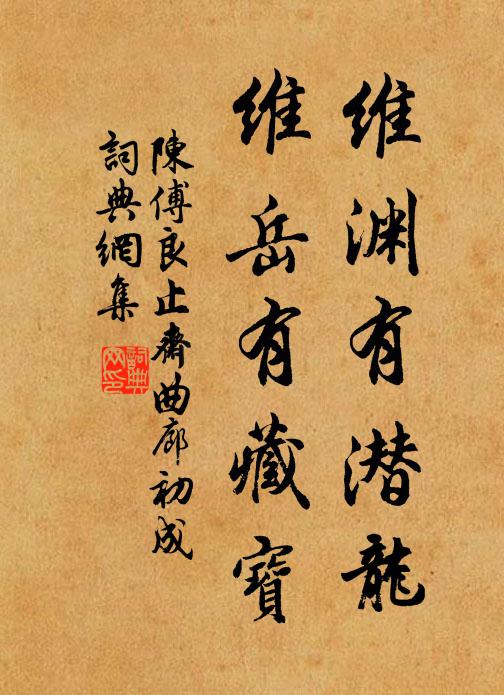 維渊有潜龍
維岳有藏寶
陳傅良止齋曲廊初成
詞典網集
詞典网印